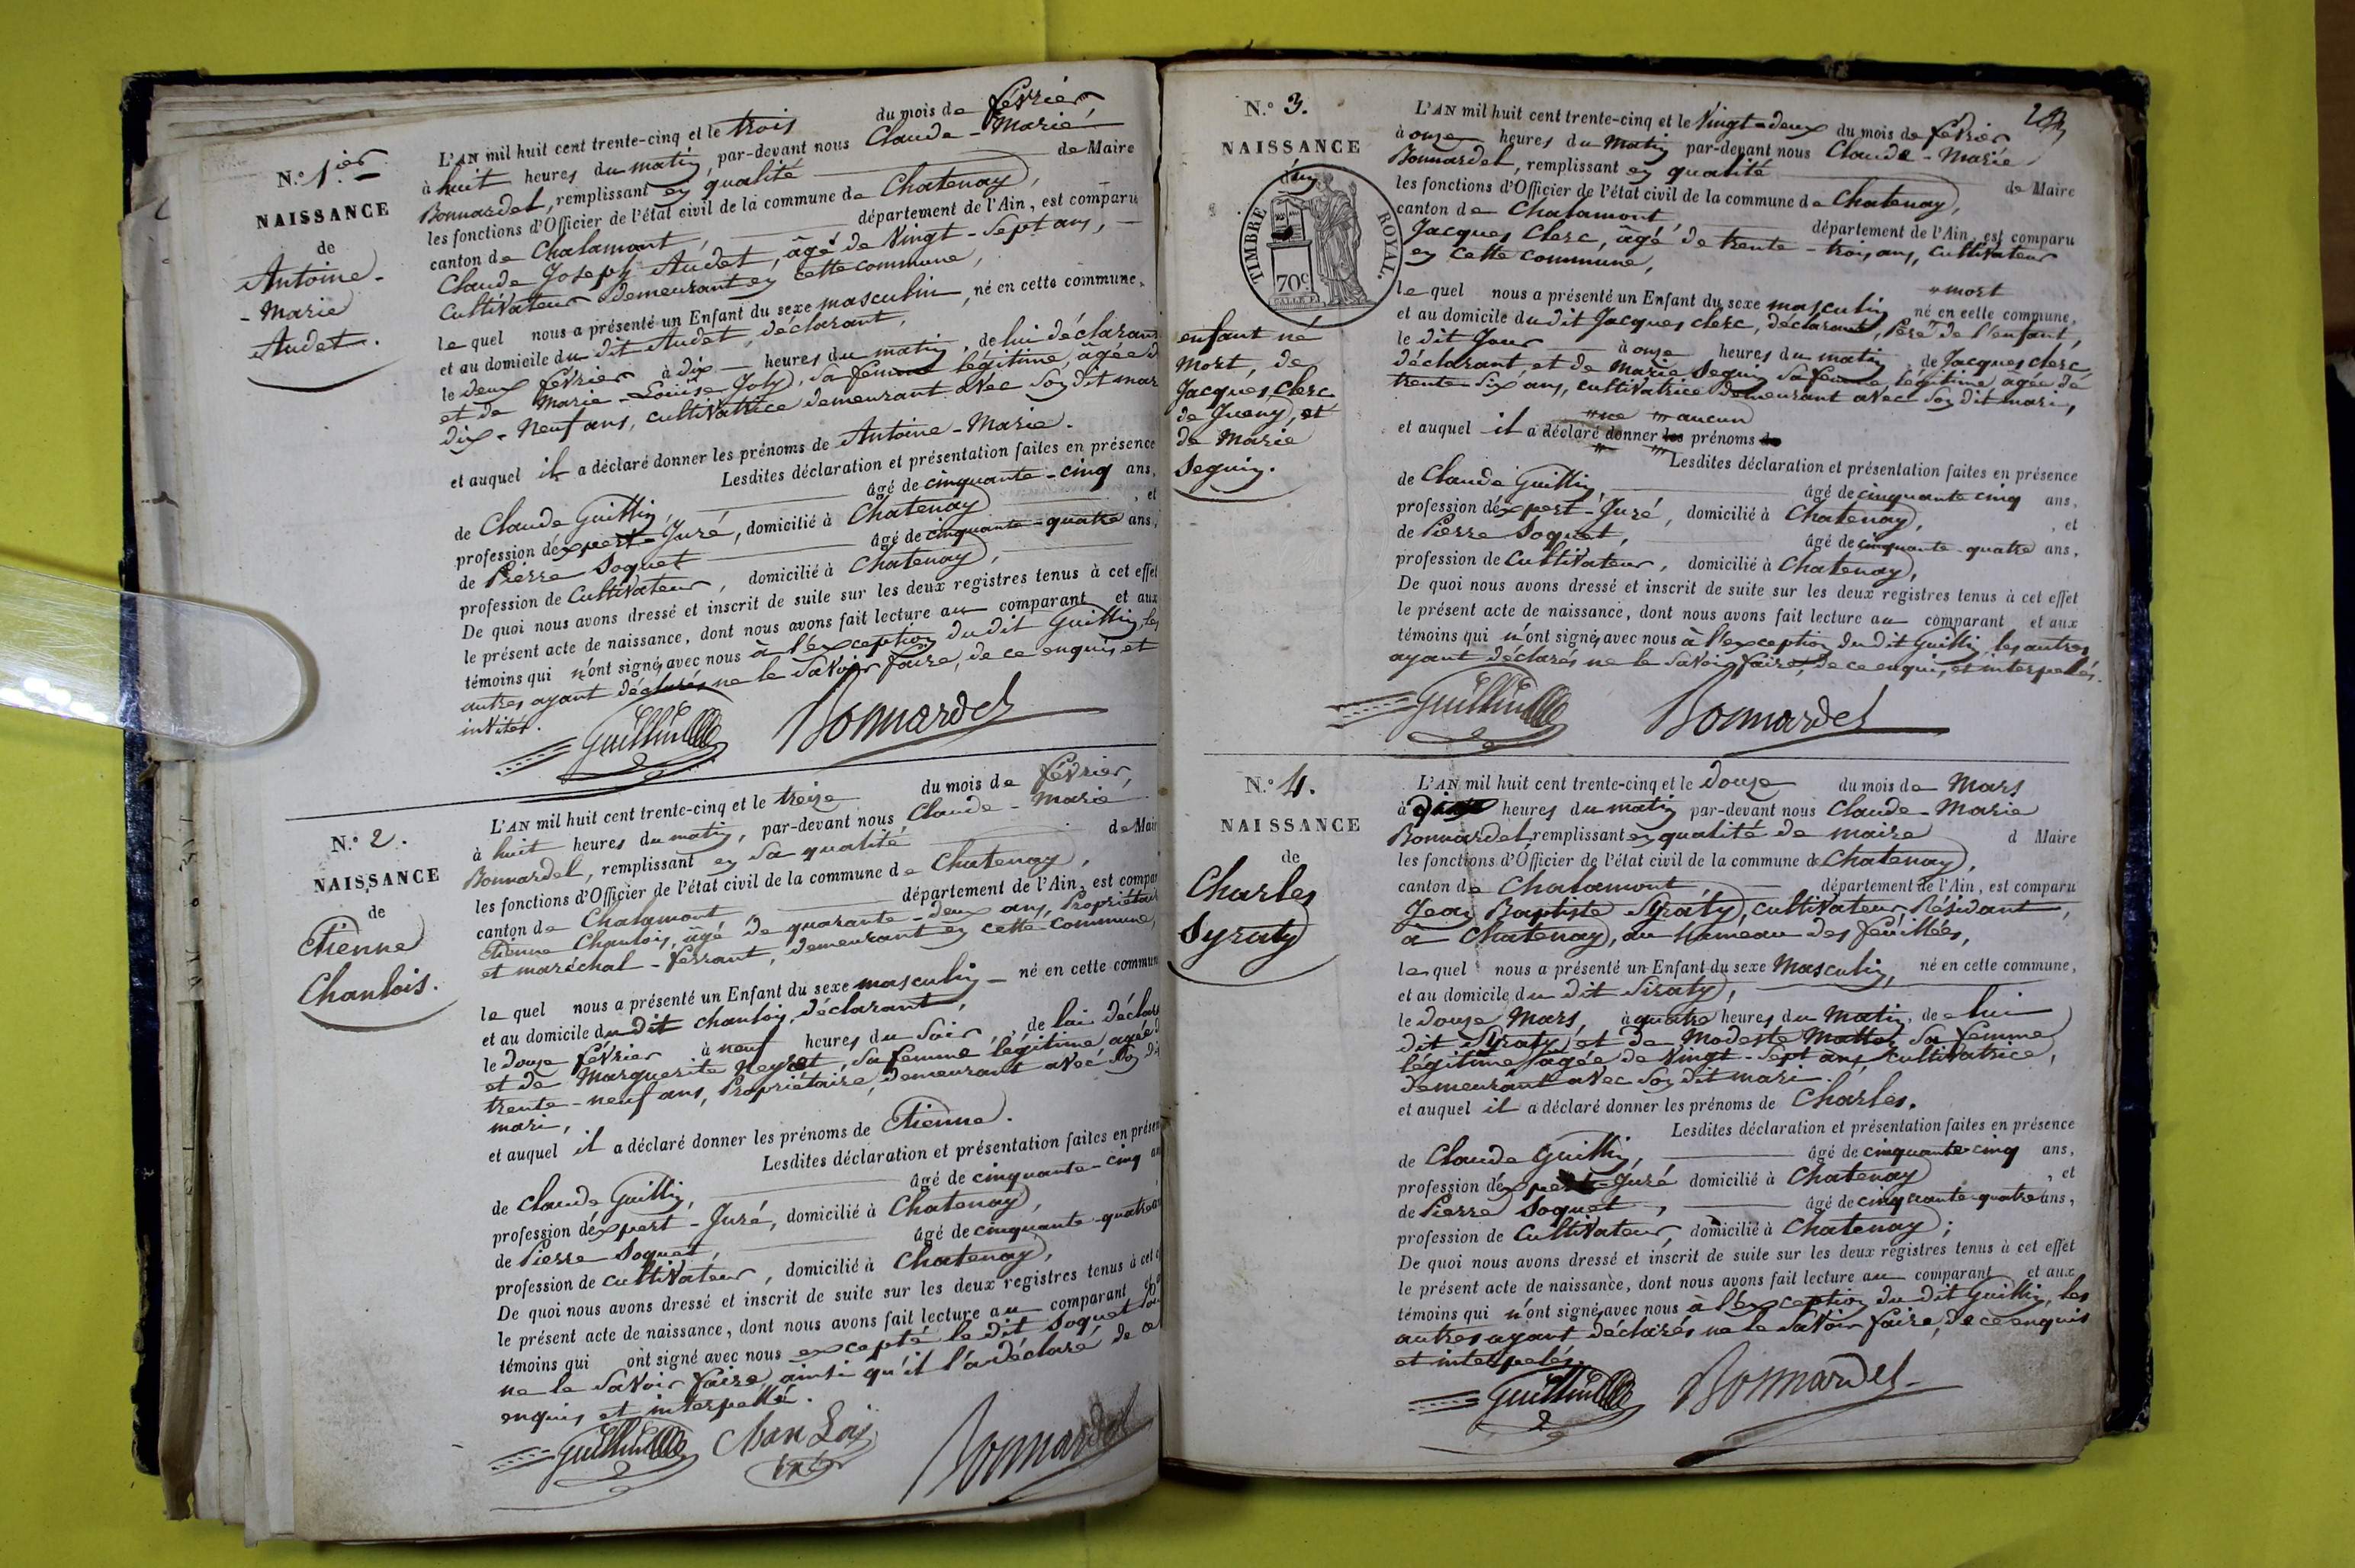 N.º 1.ier
NAISSANCE
de
Antoine-
- Marie
Audet.
L'AN mil huit cent trente-cinq et le trois du mois de février
à huit heures du matin, par-devant nous Claude-Marie
Bonnardel, remplissant en qualité de Maire
les fonctions d'Officier de l'état civil de la commune de Chatenay,
canton de Chalamont, département de l'Ain, est comparu
Claude Joseph Audet, âgé de vingt-sept ans,
cultivateur demeurant en cette commune,
lequel nous a présenté un Enfant du sexe masculin, né en cette commune,
et au domicile du dit Audet, déclarant,
le deux février à dix heures du matin, de lui déclarant
et de Marie-Louise Joly, sa femme légitime, âgée d
dix-neuf ans, cultivatrice demeurant avec son dit mar
et auquel il a déclaré donner les prénoms de Antoine-Marie.
Lesdites déclaration et présentation faites en présence
de Claude Guillin, âgé de cinquante-cinq ans,
profession d'expert-Juré, domicilié à Chatenay, et
de Pierre Soquet âgé de cinquante-quatre ans,
profession de Cultivateur, domicilié à Chatenay,
De quoi nous avons dressé et inscrit de suite sur les deux registres tenus à cet effet
le présent acte de naissance, dont nous avons fait lecture au comparant et aux
témoins qui n'ont signés avec nous à l'exception du dit Guillin, les
autres ayant déclarés ne le savoir faire, de ce enquis et
invités.
Guillin Bonnardel
N.º 2.
NAISSANCE
de
Etienne
Chanlois.
L'AN mil huit cent trente-cinq et le treize du mois de février,
à huit heures du matin, par-devant nous Claude-Marie
Bonnardel, remplissant en sa qualité de Mair
les fonctions d'Officier de l'état civil de la commune de Chatenay,
canton de Chalamont département de l'Ain, est compar
Etienne Chanlois, âgé de quarante-deux ans, Propriétair
et maréchal-ferrant, demeurant en cette commune,
lequel nous a présenté un Enfant du sexe masculin né en cette commun
et au domicile du dit chanlois, déclarant,
le douze février à neuf heures du soir, de lui déclar
et de Marguerite Neyret, sa femme légitime âgée d
trente-neuf ans, Propriétaire, demeurant avec son di
mari,
et auquel il a déclaré donner les prénoms de Etienne.
Lesdites déclaration et présentation faites en présen
de Claude Guillin, âgé de cinquante-cinq an
profession d'expert-Juré, domicilié à Chatenay,
de Pierre Soquet, âgé de cinquante-quatre
profession de cultivateur, domicilié à Chatenay,
De quoi nous avons dressé et inscrit de suite sur les deux registres tenus à cet e
le présent acte de naissance, dont nous avons fait lecture au comparant
témoins qui ont signé avec nous excepté le dit Soquet
ne le savoir faire, ainsi qu'il l'a déclaré, de ce
enquis et interpellé.
Guillin Chanlois Bonnardel
N.º 3.
NAISSANCE
d'un
TIMBRE ROYAL.
70c
enfant né
mort, de
Jacques Clerc
de Jueny, et
de Marie
Seguin.
L'AN mil huit cent trente-cinq et le vingt-deux du mois de février
à onze heures du matin par-devant nous Claude-Marie
Bonnardel, remplissant en qualité de Maire
les fonctions d'Officier de l'état civil de la commune de Chatenay,
canton de Chalamont, département de l'Ain, est comparu
Jacques Clerc, âgé de trente-trois ans, cultivateur
en cette commune,
mort
lequel nous a présenté un Enfant du sexe masculin né en cette commune,
et au domicile du dit Jacques clerc, déclarant, Père de l'enfant,
le dit Jour à onze heures du matin, de Jacques clerc
déclarant, et de Marie Seguin sa femme, légitime âgée de
trente-six ans, cultivatrice demeurant avec son dit mari,
ne aucun
et auquel il a déclaré donner les prénoms de
Lesdites déclaration et présentation faites en présence
de Claude Guillin, âgé de cinquante cinq ans,
profession d'expert-Juré, domicilié à Chatenay, et
de Pierre Soquet, âgé de cinquante-quatre ans,
profession de Cultivateur, domicilié à Chatenay,
De quoi nous avons dressé et inscrit de suite sur les deux registres tenus à cet effet
le présent acte de naissance, dont nous avons fait lecture au comparant et aux
témoins qui n'ont signés avec nous à l'exception du dit Guillin, les autres
ayant déclarés ne le savoir faire, de ce enquis, et interpellés.
Guillin Bonnardel
N.º 4.
NAISSANCE
de
Charles
Syraty
L'AN mil huit cent trente-cinq et le douze du mois de Mars
à heures du matin par-devant nous Claude-Marie
Bonnardel, remplissant en qualité de maire d Maire
les fonctions d'Officier de l'état civil de la commune de Chatenay,
canton de Chalamont, département de l'Ain, est comparu
Jean Baptiste Syraty, cultivateur, Résidant,
à Chatenay, au hameau des feuillées,
lequel nous a présenté un Enfant du sexe Masculin, né en cette commune,
et au domicile du dit Siraty,
le douze Mars, à quatre heures du Matin, de lui
dit Syraty, et de Modeste Matton sa femme
légitime âgée de vingt-sept ans, cultivatrice,
demeurant avec son dit mari.
et auquel il a déclaré donner les prénoms de Charles.
Lesdites déclaration et présentation faites en présence
de Claude Guillin, âgé de cinquante-cinq ans,
profession d'expert-Juré domicilié à Chatenay, et
de Pierre Soquet, âgé de cinquante-quatre ans,
profession de Cultivateur, domicilié à Chatenay;
De quoi nous avons dressé et inscrit de suite sur les deux registres tenus à cet effet
le présent acte de naissance, dont nous avons fait lecture au comparant et aux
témoins qui n'ont signé avec nous à l'exception du dit Guillin, les
autres ayant déclarés ne le savoir faire, de ce enquis
et interpelés.
Guillin Bonnardel